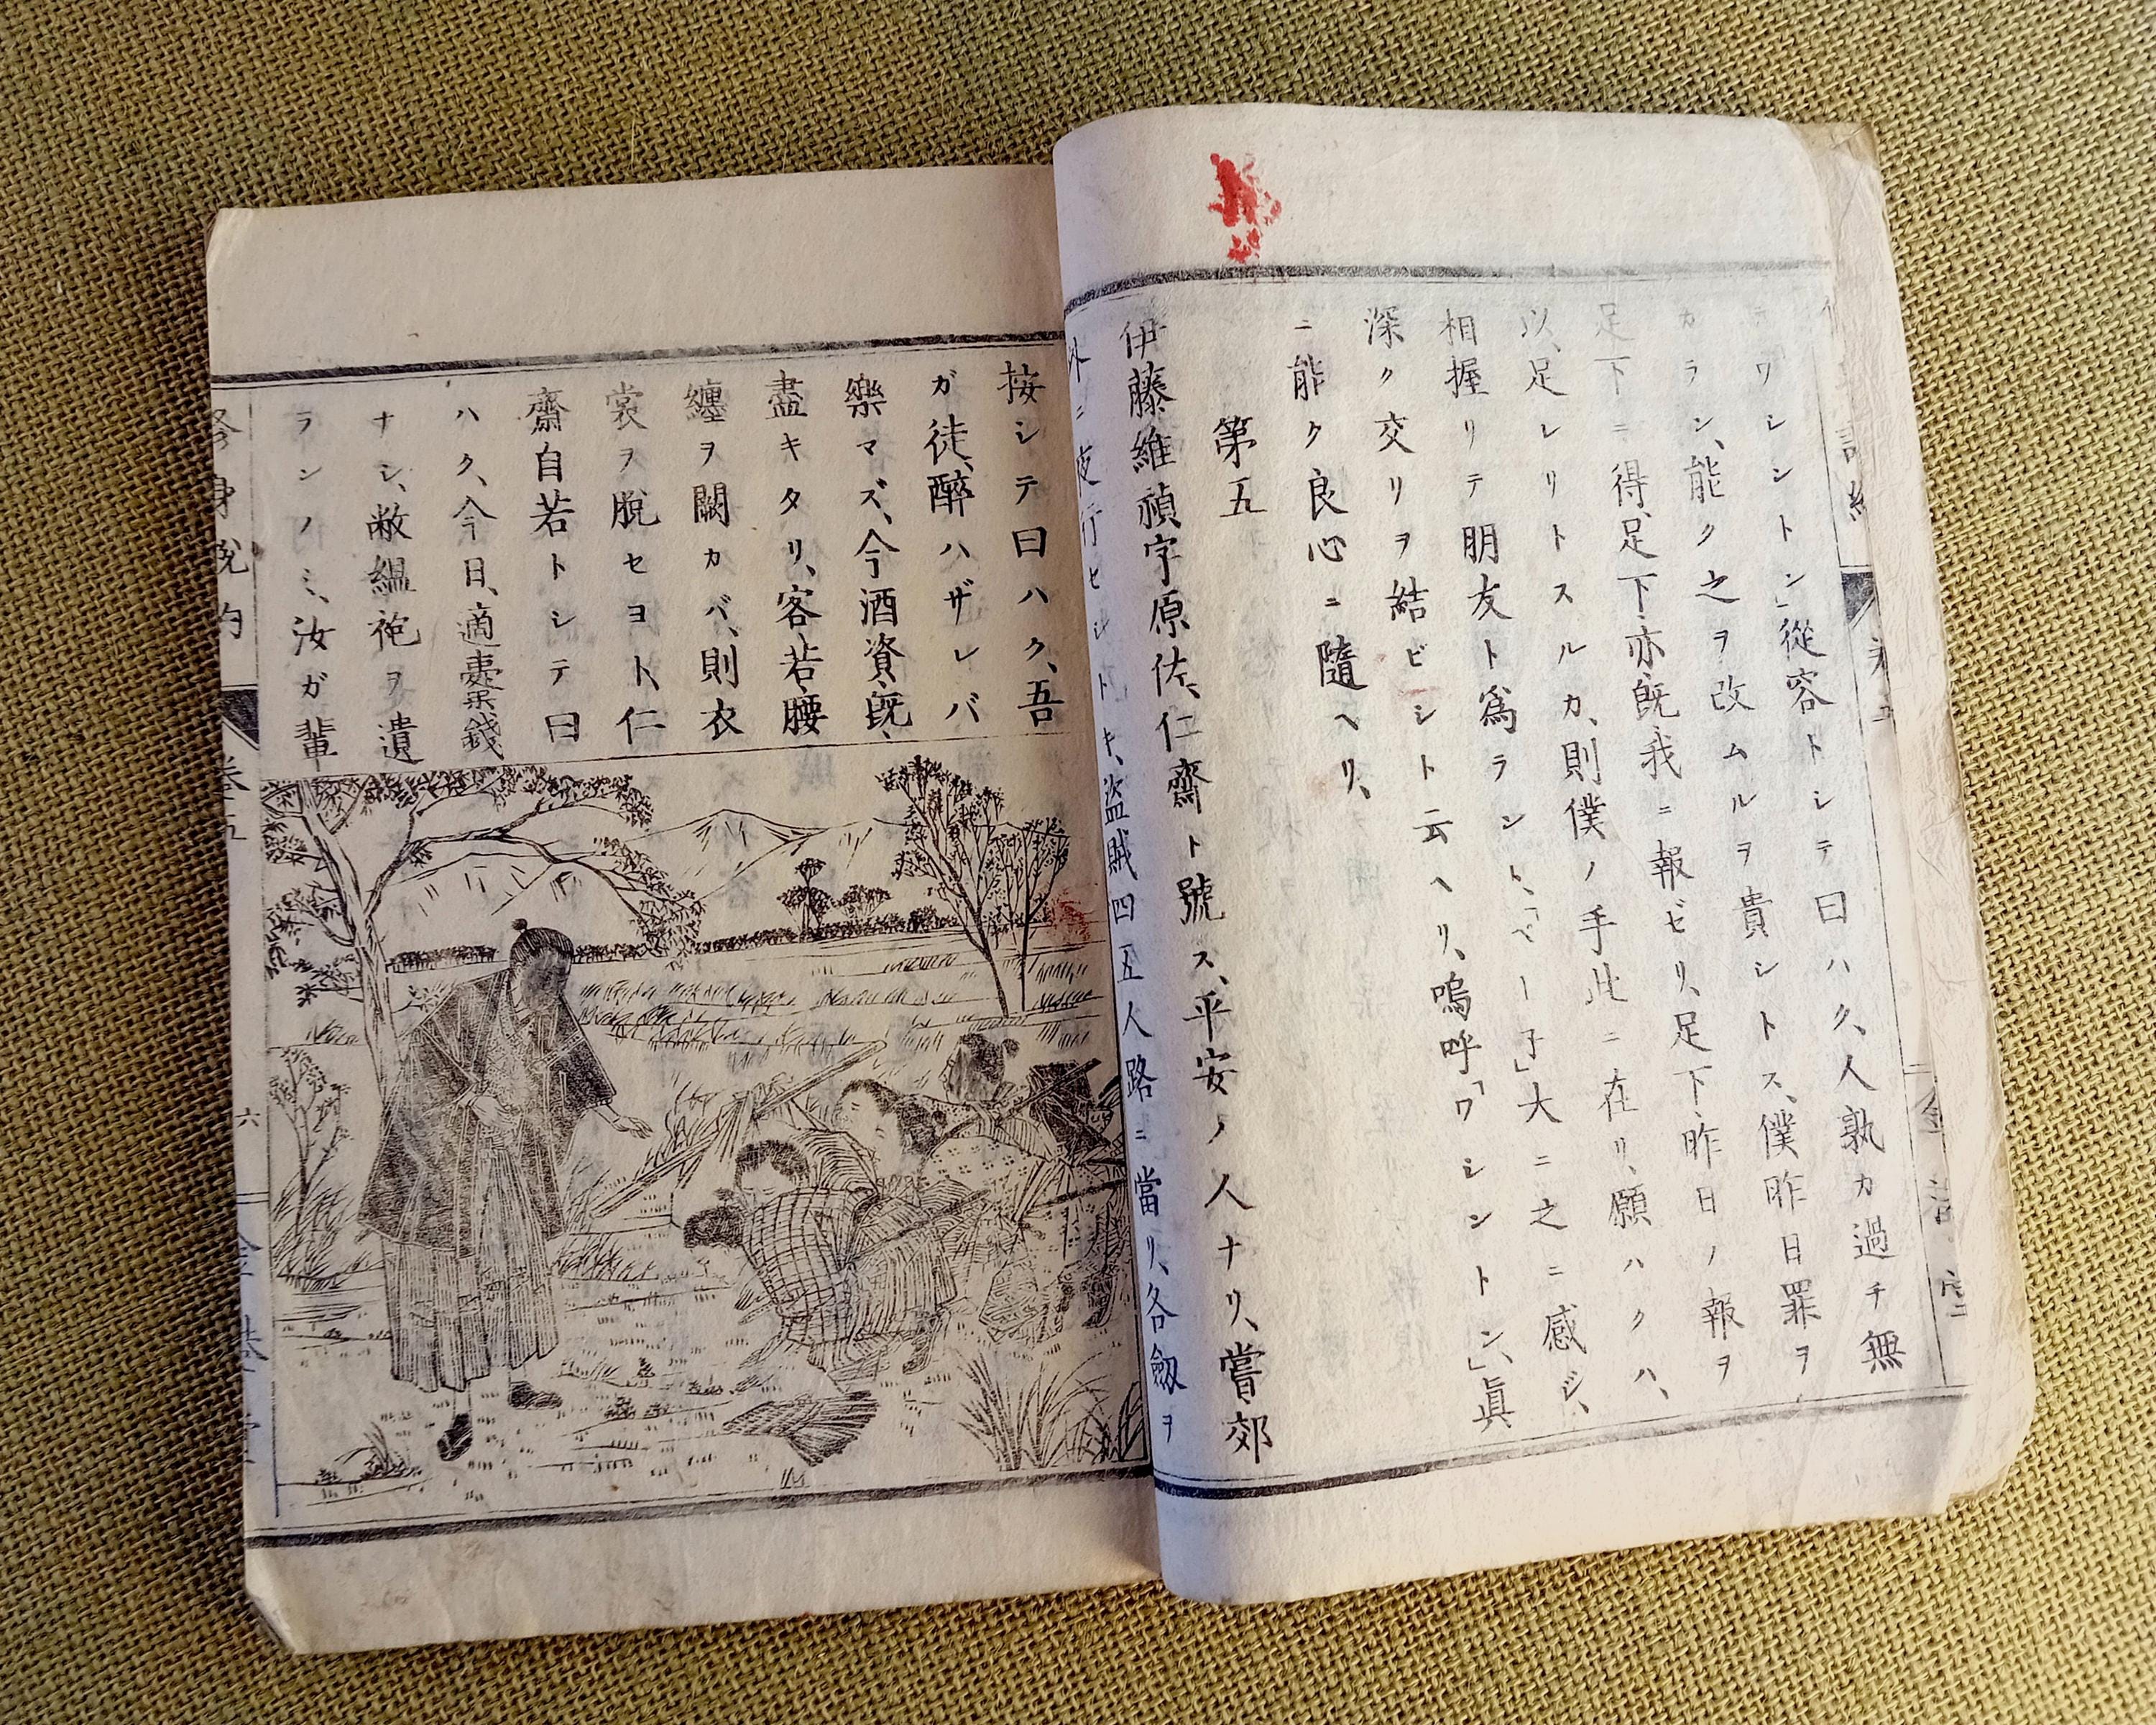 ワシントン」從容トシテ曰ハク、人孰カ過チ無
カラン、能ク之ヲ改ムルヲ貴シトス、僕昨日罪ヲ
足下ニ得、足下亦既我ニ報ゼリ、足下昨日ノ報ヲ
以、足レリトスルカ、則僕ノ手此ニ在リ、願ハクハ、
相握リテ朋友ト爲ラント、「ペーン」大ニ之ニ感ジ、
深ク交リヲ結ビシト云ヘリ、嗚呼「ワシントン」眞
ニ能ク良心ニ隨ヘリ、
第五
伊藤維禎字原佐、仁齋ト號ス、平安ノ人ナリ、嘗郊
外ニ夜行セシトキ、盜賊四五人路ニ當リ、各劔ヲ
按シテ曰ハク、吾
ガ徒、醉ハザレバ
樂マズ、今酒資、既、
盡キタリ、客若、腰
纏ヲ闕カバ、則衣
裳ヲ脫セヨト、仁
齋自若トシテ曰
ハク、今日、適橐錢
ナシ、敝縕袍ヲ遺
ランノミ、汝ガ輩
修身說約
卷五
六
金港堂